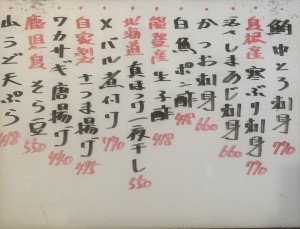 鮪中とろ刺身 770
島根産寒ぶり刺身 770
活〆しまあじ刺身 660
かつお刺身 660
白魚ポン酢 418
能登産生子酢 418
北海道真ほっけ一夜干し 550
メバル煮付け 770
自家製さつま揚げ 495
ワカサギ唐揚げ 440
鹿児島そら豆 550
山うど天ぷら 418